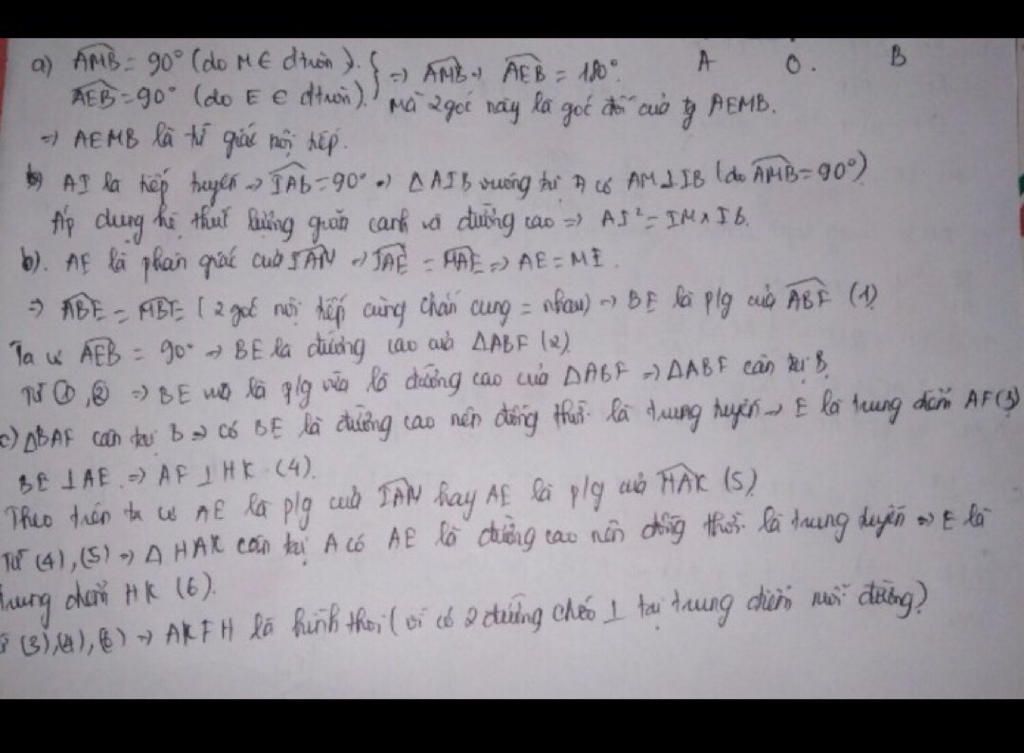 a) AMB = 90° (do M ∈ đtròn). } ⇒ AMB + AEB = 180°. A O. B
AEB = 90° (do E ∈ đtròn). Mà 2 góc này là góc đối của tg AEMB.
⇒ AEMB là tứ giác nội tiếp.
b) AI là tiếp tuyến ⇒ IAB = 90° ⇒ Δ AIB vuông tại A có AM ⊥ IB (do AMB = 90°)
Áp dụng hệ thức lượng giữa cạnh và đường cao ⇒ AI² = IM x IB.
b). AE là phân giác của IAM ⇒ IAE = MAE ⇒ AE = ME.
⇒ ABE = MBE (2 góc nội tiếp cùng chắn cung = nhau) ⇒ BE là p/g của ABF (1)
Ta có AEB = 90° ⇒ BE là đường cao của ΔABF (2)
Từ ①, ② ⇒ BE vừa là p/g vừa là đường cao của ΔABF ⇒ ΔABF cân tại B.
c) ΔBAF cân tại B ⇒ có BE là đường cao nên đồng thời là trung tuyến ⇒ E là trung điểm AF (3)
BE ⊥ AE. ⇒ AF ⊥ HK (4).
Theo trên ta có AE là p/g của IAM hay AE là p/g của HAK (5)
Từ (4), (5) ⇒ Δ HAK cân tại A có AE là đường cao nên đồng thời là trung tuyến ⇒ E là
trung điểm HK (6).
(3), (4), (6) ⇒ AKFH là hình thoi (vì có 2 đường chéo ⊥ tại trung điểm mỗi đường)